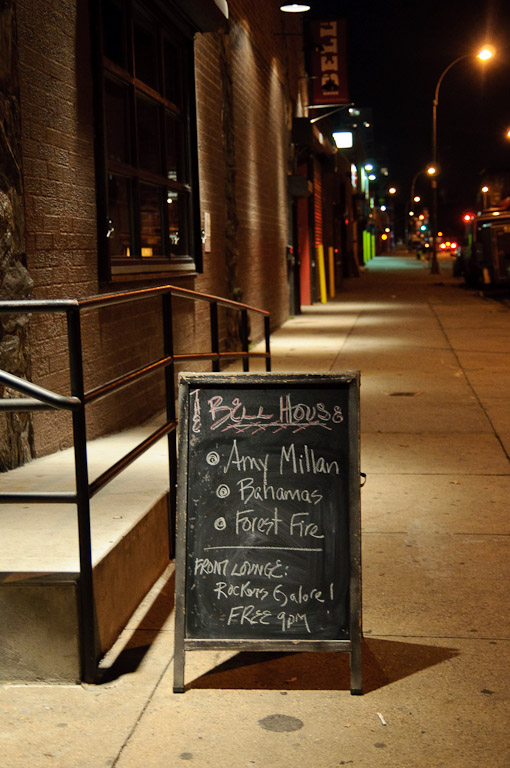 BELL
THE BELL HOUSE
Amy Millan
Bahamas
Forest Fire
FRONT LOUNGE:
Rockers Galore!
FREE 9pm